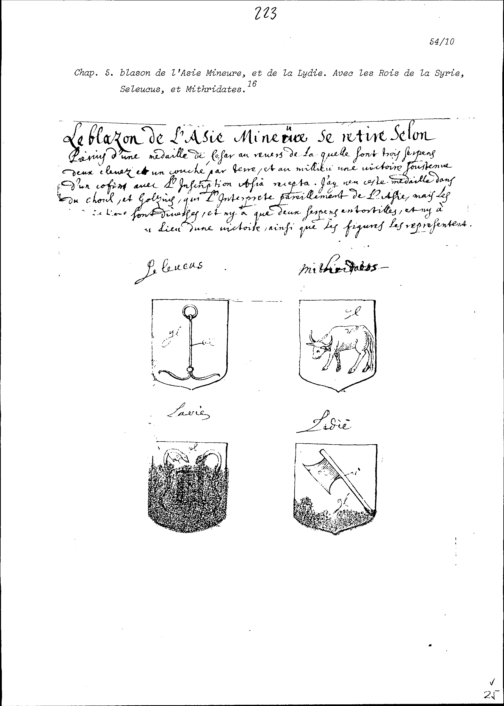 223
54/10
Chap. 5. blason de l'Asie Mineure, et de la Lydie. Avec les Rois de la Syrie,
Seleucus, et Mithridates.16
Le blazon de L'Asie Mineure se retire selon
d'une medaille de Cesar au revers de la quelle sont trois serpens
deux elevez et un couché par terre, et au milieu une victoire soustenue
d'un cofins avec L'Inscription Asia recepta. J'ay veu ceste medaille dans
du choul, et Goltzius, qui L'Interprete pareillement de L'Asie, mais les
sont diverses, et ny a que deux serpens entortilles, et ny a
lieu d'une victoire, ainsi que les figures les representent.
Seleucus
Mithridates
Lidie
25